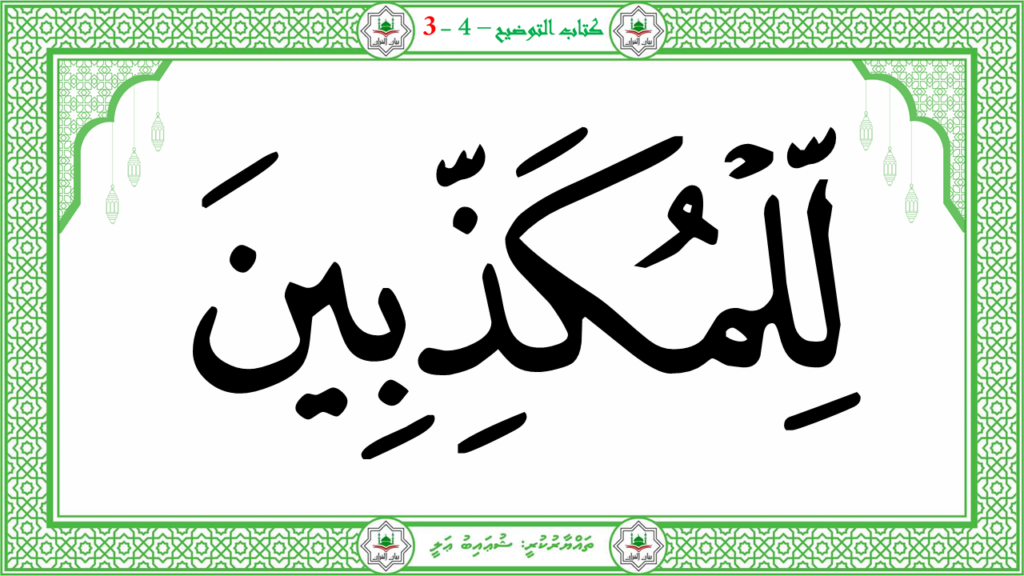 كتاب التوضيح – 4 - 3
لِّلْمُكَذِّبِينَ
ތައްޔާރުކުރީ: ޝުޢައިބު ޢަލީ